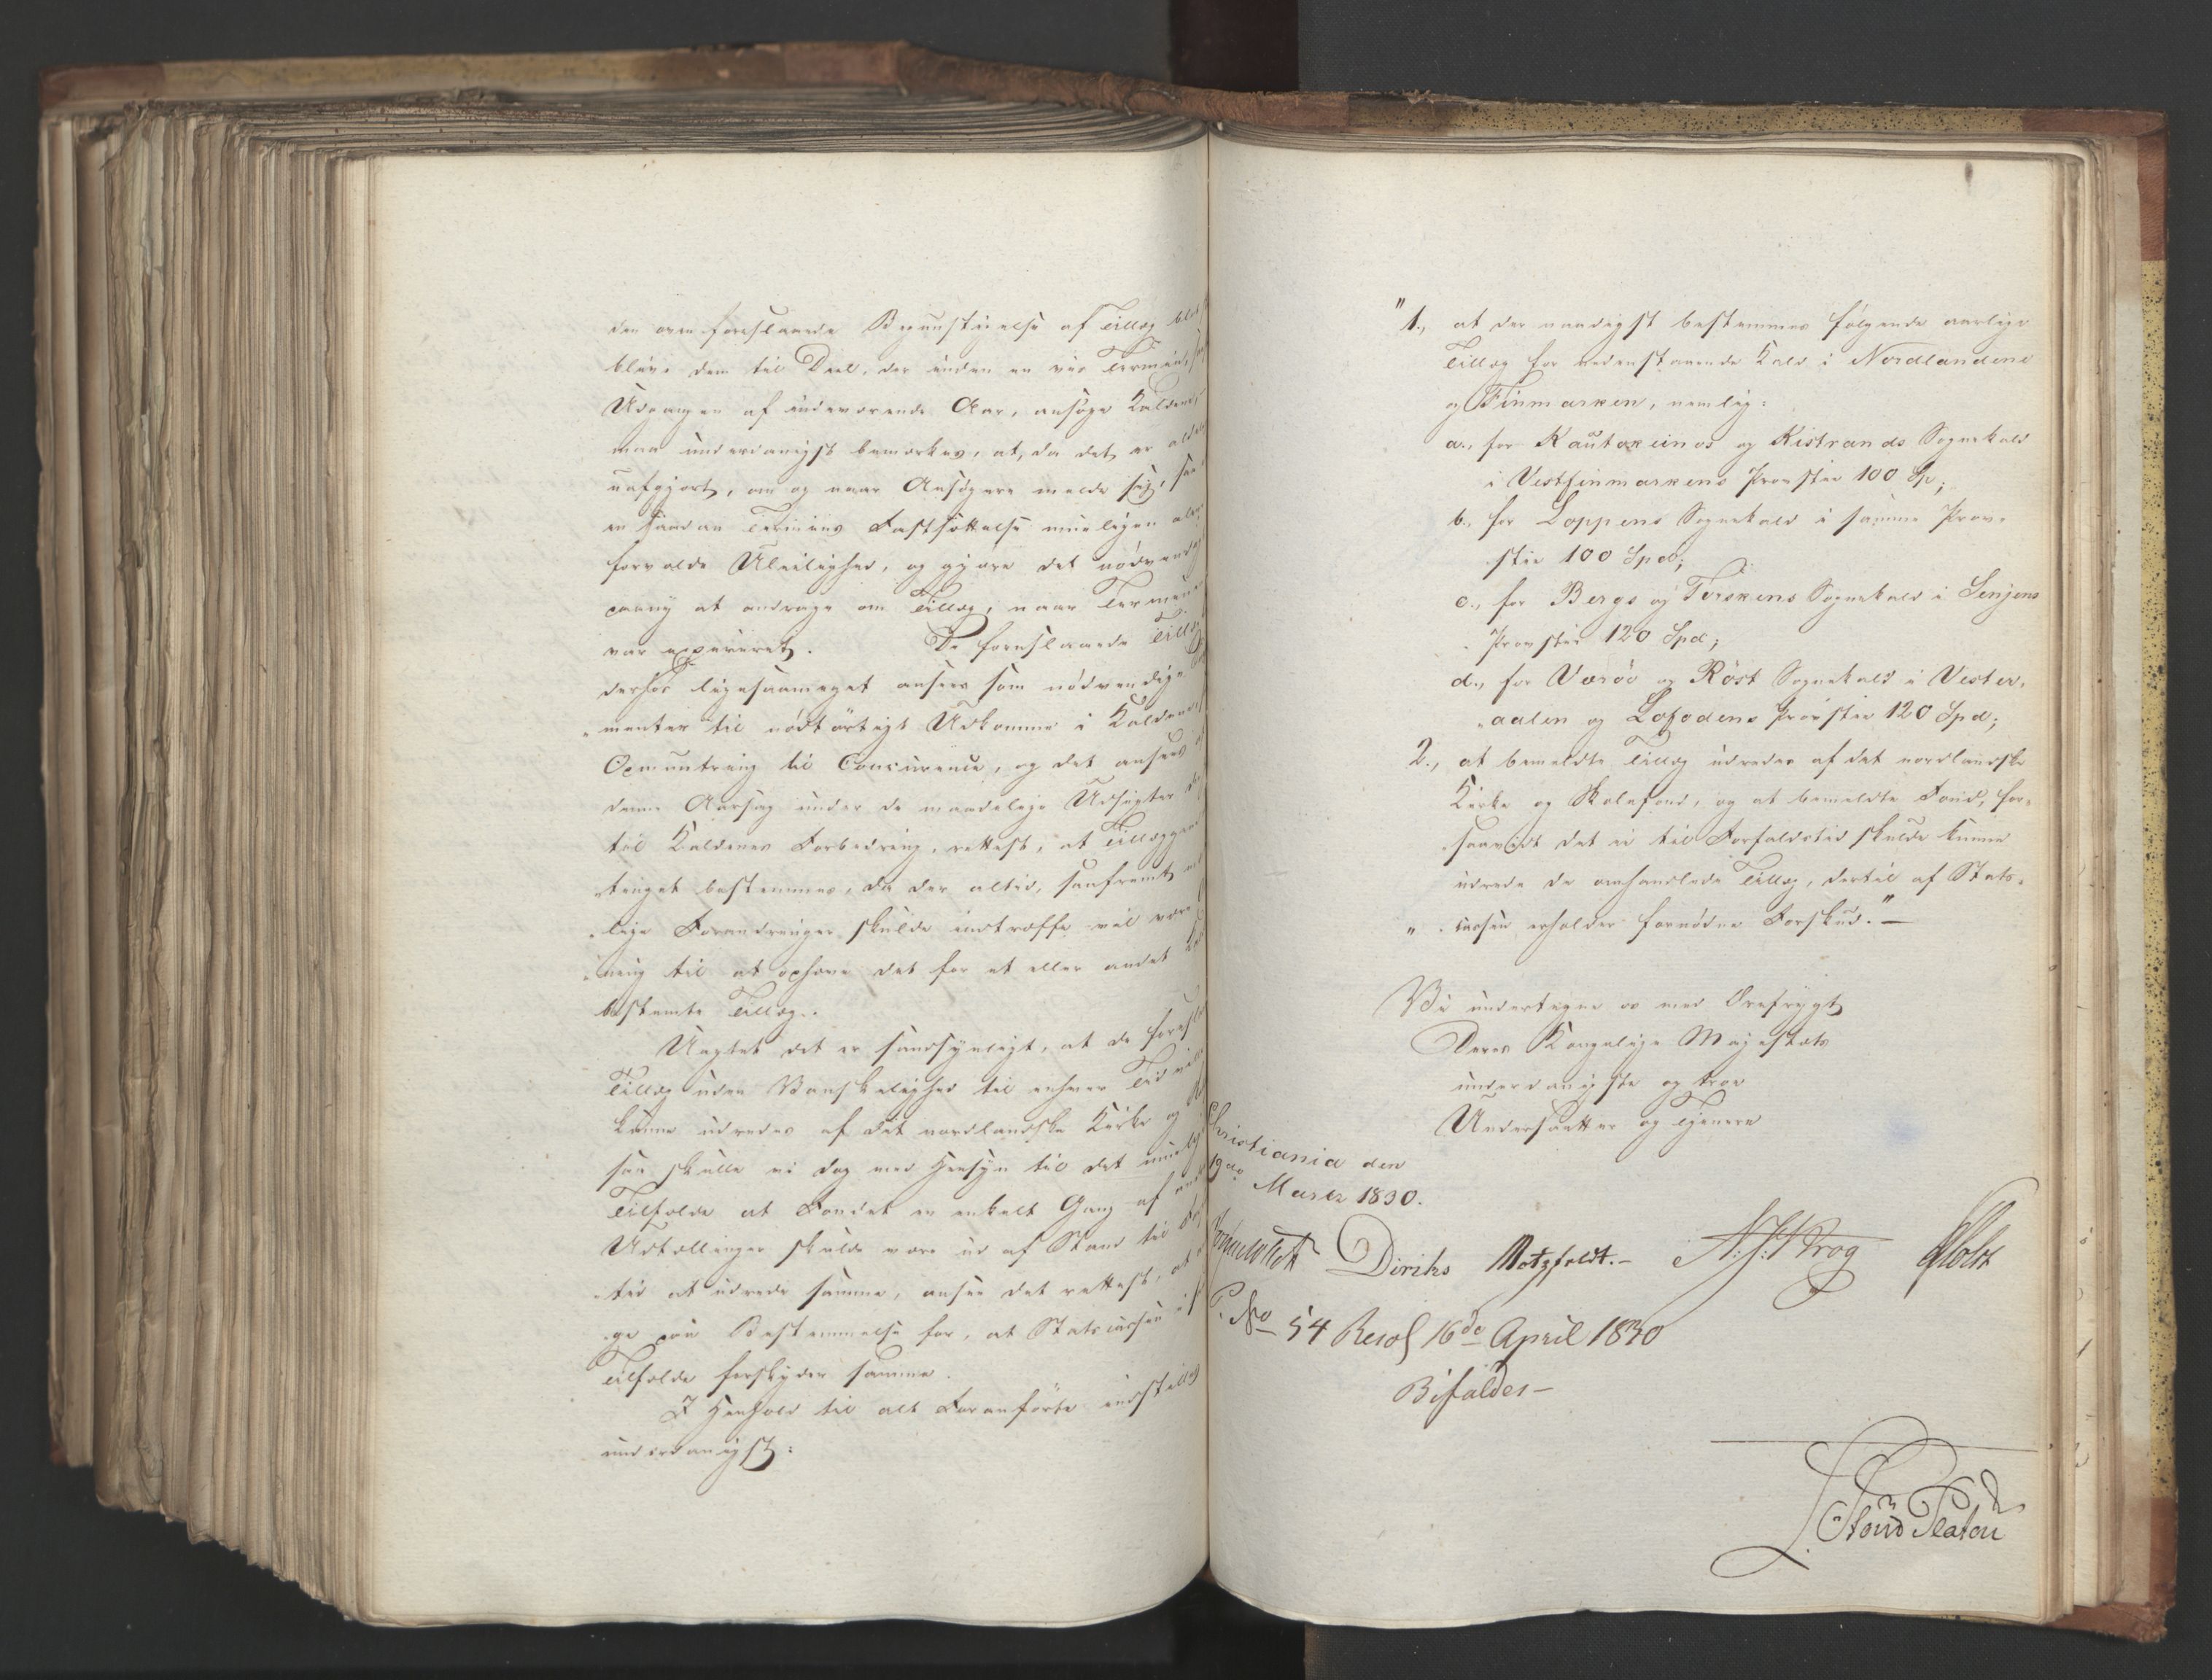 den oven foreslaaede Begunstigelse af Tillæg
blive dem til Deel, der inden en vis Termin,
Udgangen af indeværende Aar, ansøge Kaldene,
maa underdanigst bemærkes, at, da det er
uafgjort, om og naar Ansøgere melde sig,
en saadan Termins Fastsættelse mueligen
forvolde Uleilighed, og gjøre det
paany at andrage om Tillæg, naar
var expireret. De foreslaaede
derhos ligesaameget ansees som nødvendige
menter til nødtørftigt Udkomme i
Opmuntring til Concurence, og det ansees
denne Aarsag under de maadelige Udsigter
til Kaldenes Forbedring, rettest, at
tinget bestemmes, da der altid, saafremt
lige Forandringer skulde indtræffe vil være
ning til at ophæve det for et eller andet
bestemte Tillæg.
Uagtet det er sandsynligt, at de
Tillæg uden Vanskelighed til enhver Tid
kunne udredes af det nordlandske Kirke og
saa skulle vi dog med Hensyn til det
Tilfælde at Fondet en enkelt Gang af
Udtællinger skulde være ud af Stand til
tid at udrede samme, ansee det rettest,
ge paa Bestemmelse for, at Statscassen i
Tilfælde forskyder samme.
I Henhold til alt Foranførte
underdanigst:
"1., at der naadigst bestemmes følgende aarlige
Tillæg for nedenstaaende Kald i Nordlandene
og Finmarken, nemlig:
a., for Kautokeinos og Kistrands Sognekald
i Vestfinmarkens Provstie 100 Sp;
b., for Loppens Sognekald i samme Prov-
stie 100 Spd;
c., for Bergs og Torskens Sognekald i Senjens
Provstie 120 Spd;
d., for Værøe og Röst Sognekald i Vester-
aalen og Lofodens Provstie 120 Spd;
2., at bemeldte Tillæg udredes af det nordlandske
Kirke og Skolefond, og at bemeldte Fond, for-
saavidt det ei til Forfaldstid skulde kunne
udrede de omhandlede Tillæg, dertil af Stats-
" cassen erholder fornøden Forskud."—
Vi undertegne os med Ærefrygt
Deres Kongelige Majestæts
underdanigste og troe
Undersaatter og Tjenere
Christiania den
19de Marts 1830.
Diriks Motzfeldt.— Krog Holst
P. No 54 Resol 16de April 1830
Bifaldes—
Stoud Platou